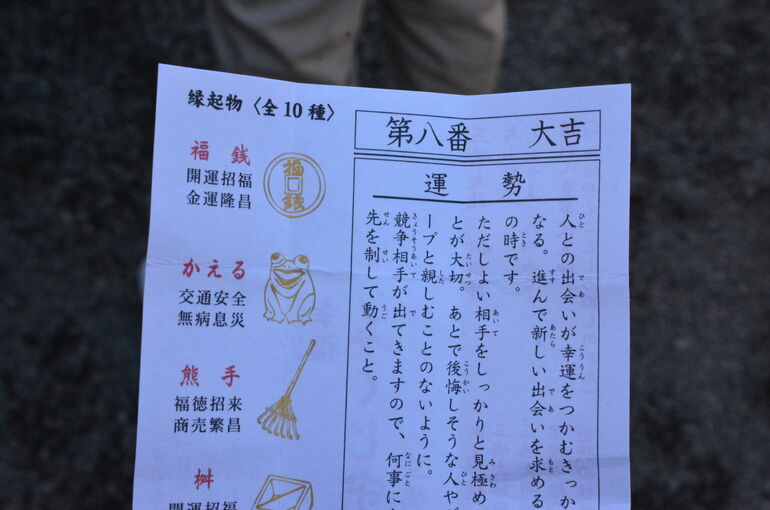 縁起物〈全10種〉
福銭
開運招福
金運隆昌
福銭
かえる
交通安全
無病息災
熊手
福徳招来
商売繁昌
桝
開運招福
第八番 大吉
運勢
人との出会いが幸運をつかむきっか
なる。進んで新しい出会いを求める
の時です。
ただしよい相手をしっかりと見極め
とが大切。あとで後悔しそうな人や
ープと親しむことのないように。
競争相手が出てきますので、何事に
先を制して動くこと。